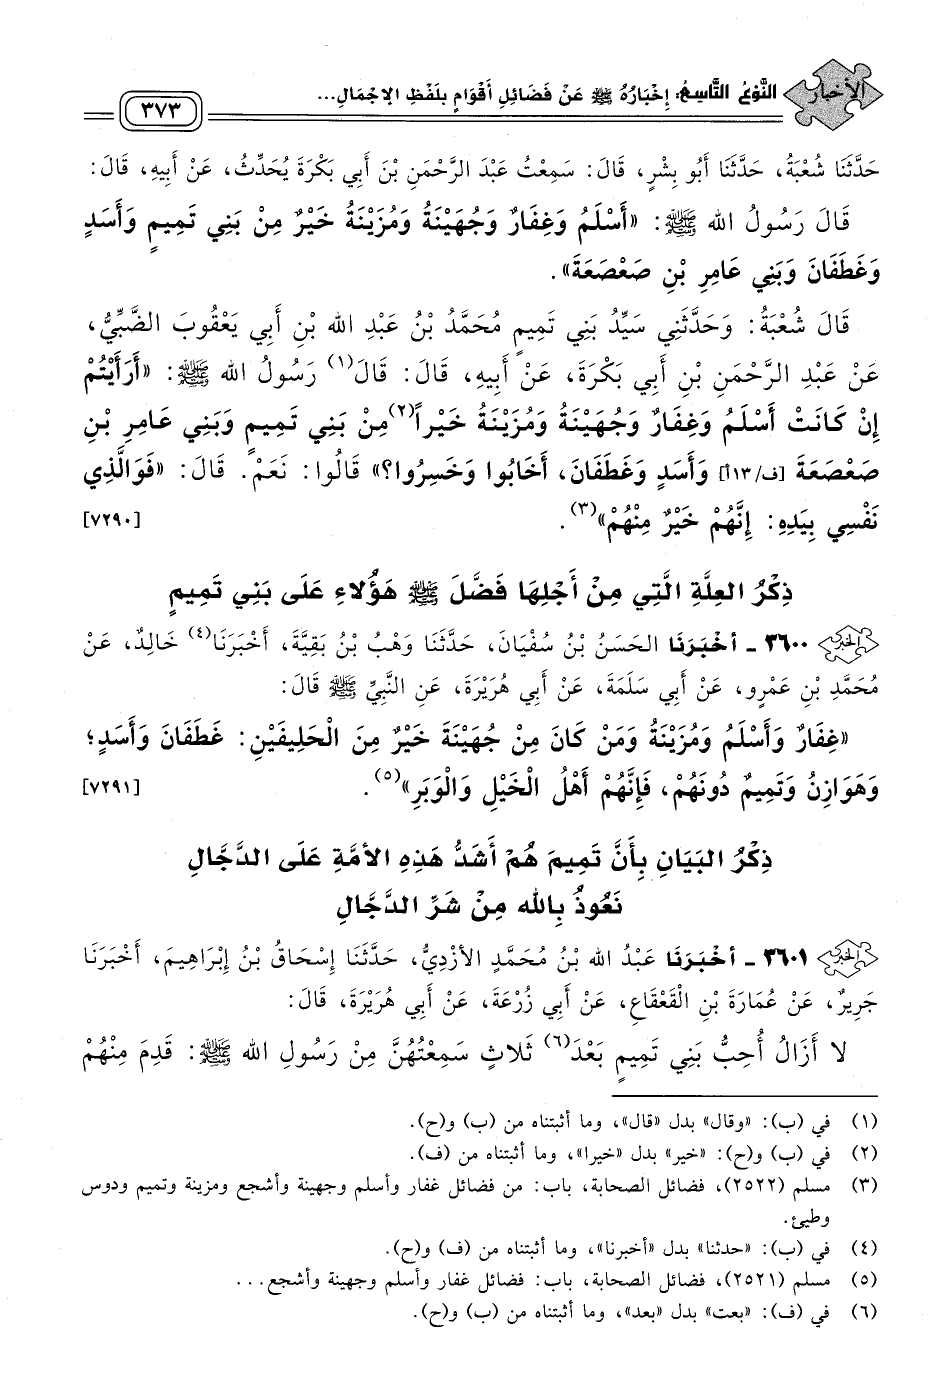 الأخبار النَّوْعُ التَّاسِعُ: إِخْبَارُهُ ﷺ عَنْ فَضَائِلِ أَقْوَامٍ بِلَفْظِ الإِجْمَالِ... ٣٧٣
حَدَّثَنَا شُعْبَةُ، حَدَّثَنَا أَبُو بِشْرٍ، قَالَ: سَمِعْتُ عَبْدَ الرَّحْمَنِ بْنَ أَبِي بَكْرَةَ يُحَدِّثُ، عَنْ أَبِيهِ، قَالَ:
قَالَ رَسُولُ الله ﷺ: «أَسْلَمُ وَغِفَارٌ وَجُهَيْنَةُ وَمُزَيْنَةُ خَيْرٌ مِنْ بَنِي تَمِيمٍ وَأَسَدٍ
وَغَطَفَانَ وَبَنِي عَامِرِ بْنِ صَعْصَعَةَ».
قَالَ شُعْبَةُ: وَحَدَّثَنِي سَيِّدُ بَنِي تَمِيمٍ مُحَمَّدُ بْنُ عَبْدِ الله بْنِ أَبِي يَعْقُوبَ الضَّبِّيُّ،
عَنْ عَبْدِ الرَّحْمَنِ بْنِ أَبِي بَكْرَةَ، عَنْ أَبِيهِ، قَالَ: قَالَ(١) رَسُولُ الله ﷺ: «أَرَأَيْتُمْ
إِنْ كَانَتْ أَسْلَمُ وَغِفَارٌ وَجُهَيْنَةُ وَمُزَيْنَةُ خَيْراً(٢) مِنْ بَنِي تَمِيمٍ وَبَنِي عَامِرِ بْنِ
صَعْصَعَةَ [ف/١٣أ] وَأَسَدٍ وَغَطَفَانَ، أَخَابُوا وَخَسِرُوا؟» قَالُوا: نَعَمْ. قَالَ: «فَوَالَّذِي
نَفْسِي بِيَدِهِ: إِنَّهُمْ خَيْرٌ مِنْهُمْ»(٣). [٧٢٩٠]
ذِكْرُ العِلَّةِ الَّتِي مِنْ أَجْلِهَا فَضَّلَ ﷺ هَؤُلاءِ عَلَى بَنِي تَمِيمٍ
٣٦٠٠ - أَخْبَرَنَا الحَسَنُ بْنُ سُفْيَانَ، حَدَّثَنَا وَهْبُ بْنُ بَقِيَّةَ، أَخْبَرَنَا(٤) خَالِدٌ، عَنْ
مُحَمَّدِ بْنِ عَمْرٍو، عَنْ أَبِي سَلَمَةَ، عَنْ أَبِي هُرَيْرَةَ، عَنِ النَّبِيِّ ﷺ قَالَ:
«غِفَارٌ وَأَسْلَمُ وَمُزَيْنَةُ وَمَنْ كَانَ مِنْ جُهَيْنَةَ خَيْرٌ مِنَ الْحَلِيفَيْنِ: غَطَفَانَ وَأَسَدٍ؛
وَهَوَازِنُ وَتَمِيمٌ دُونَهُمْ، فَإِنَّهُمْ أَهْلُ الْخَيْلِ وَالْوَبَرِ»(٥). [٧٢٩١]
ذِكْرُ البَيَانِ بِأَنَّ تَمِيمَ هُمْ أَشَدُّ هَذِهِ الأمَّةِ عَلَى الدَّجَّالِ
نَعُوذُ بِالله مِنْ شَرِّ الدَّجَّالِ
٣٦٠١ - أَخْبَرَنَا عَبْدُ الله بْنُ مُحَمَّدٍ الأَزْدِيُّ، حَدَّثَنَا إِسْحَاقُ بْنُ إِبْرَاهِيمَ، أَخْبَرَنَا
جَرِيرٌ، عَنْ عُمَارَةَ بْنِ القَعْقَاعِ، عَنْ أَبِي زُرْعَةَ، عَنْ أَبِي هُرَيْرَةَ، قَالَ:
لا أَزَالُ أُحِبُّ بَنِي تَمِيمٍ بَعْدَ(٦) ثَلاثٍ سَمِعْتُهُنَّ مِنْ رَسُولِ الله ﷺ: قَدِمَ مِنْهُمْ
(١) في (ب): «وقال» بدل «قال»، وما أثبتناه من (ب) و(ح).
(٢) في (ب) و(ح): «خير» بدل «خيرا»، وما أثبتناه من (ف).
(٣) مسلم (٢٥٢٢)، فضائل الصحابة، باب: من فضائل غفار وأسلم وجهينة وأشجع ومزينة وتميم ودوس
وطيئ.
(٤) في (ب): «حدثنا» بدل «أخبرنا»، وما أثبتناه من (ف) و(ح).
(٥) مسلم (٢٥٢١)، فضائل الصحابة، باب: فضائل غفار وأسلم وجهينة وأشجع...
(٦) في (ف): «بعت» بدل «بعد»، وما أثبتناه من (ب) و(ح).